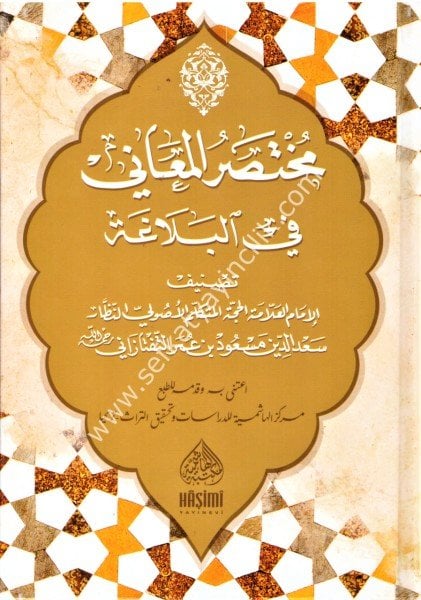 مُخْتَصَرُ المَعَانِي
فِي البَلَاغَة
تصنيف
الإمام العلامة الحجة المتكلم الأصولي النظار
سعد الدين مسعود بن عمر التفتازاني رحمه الله
اعتنى به وقدمه للطبع
مركز الهاشمية للدراسات وتحقيق التراث
المكتبة الهاشمية
HÂŞİMÎ
YAYINEVİ